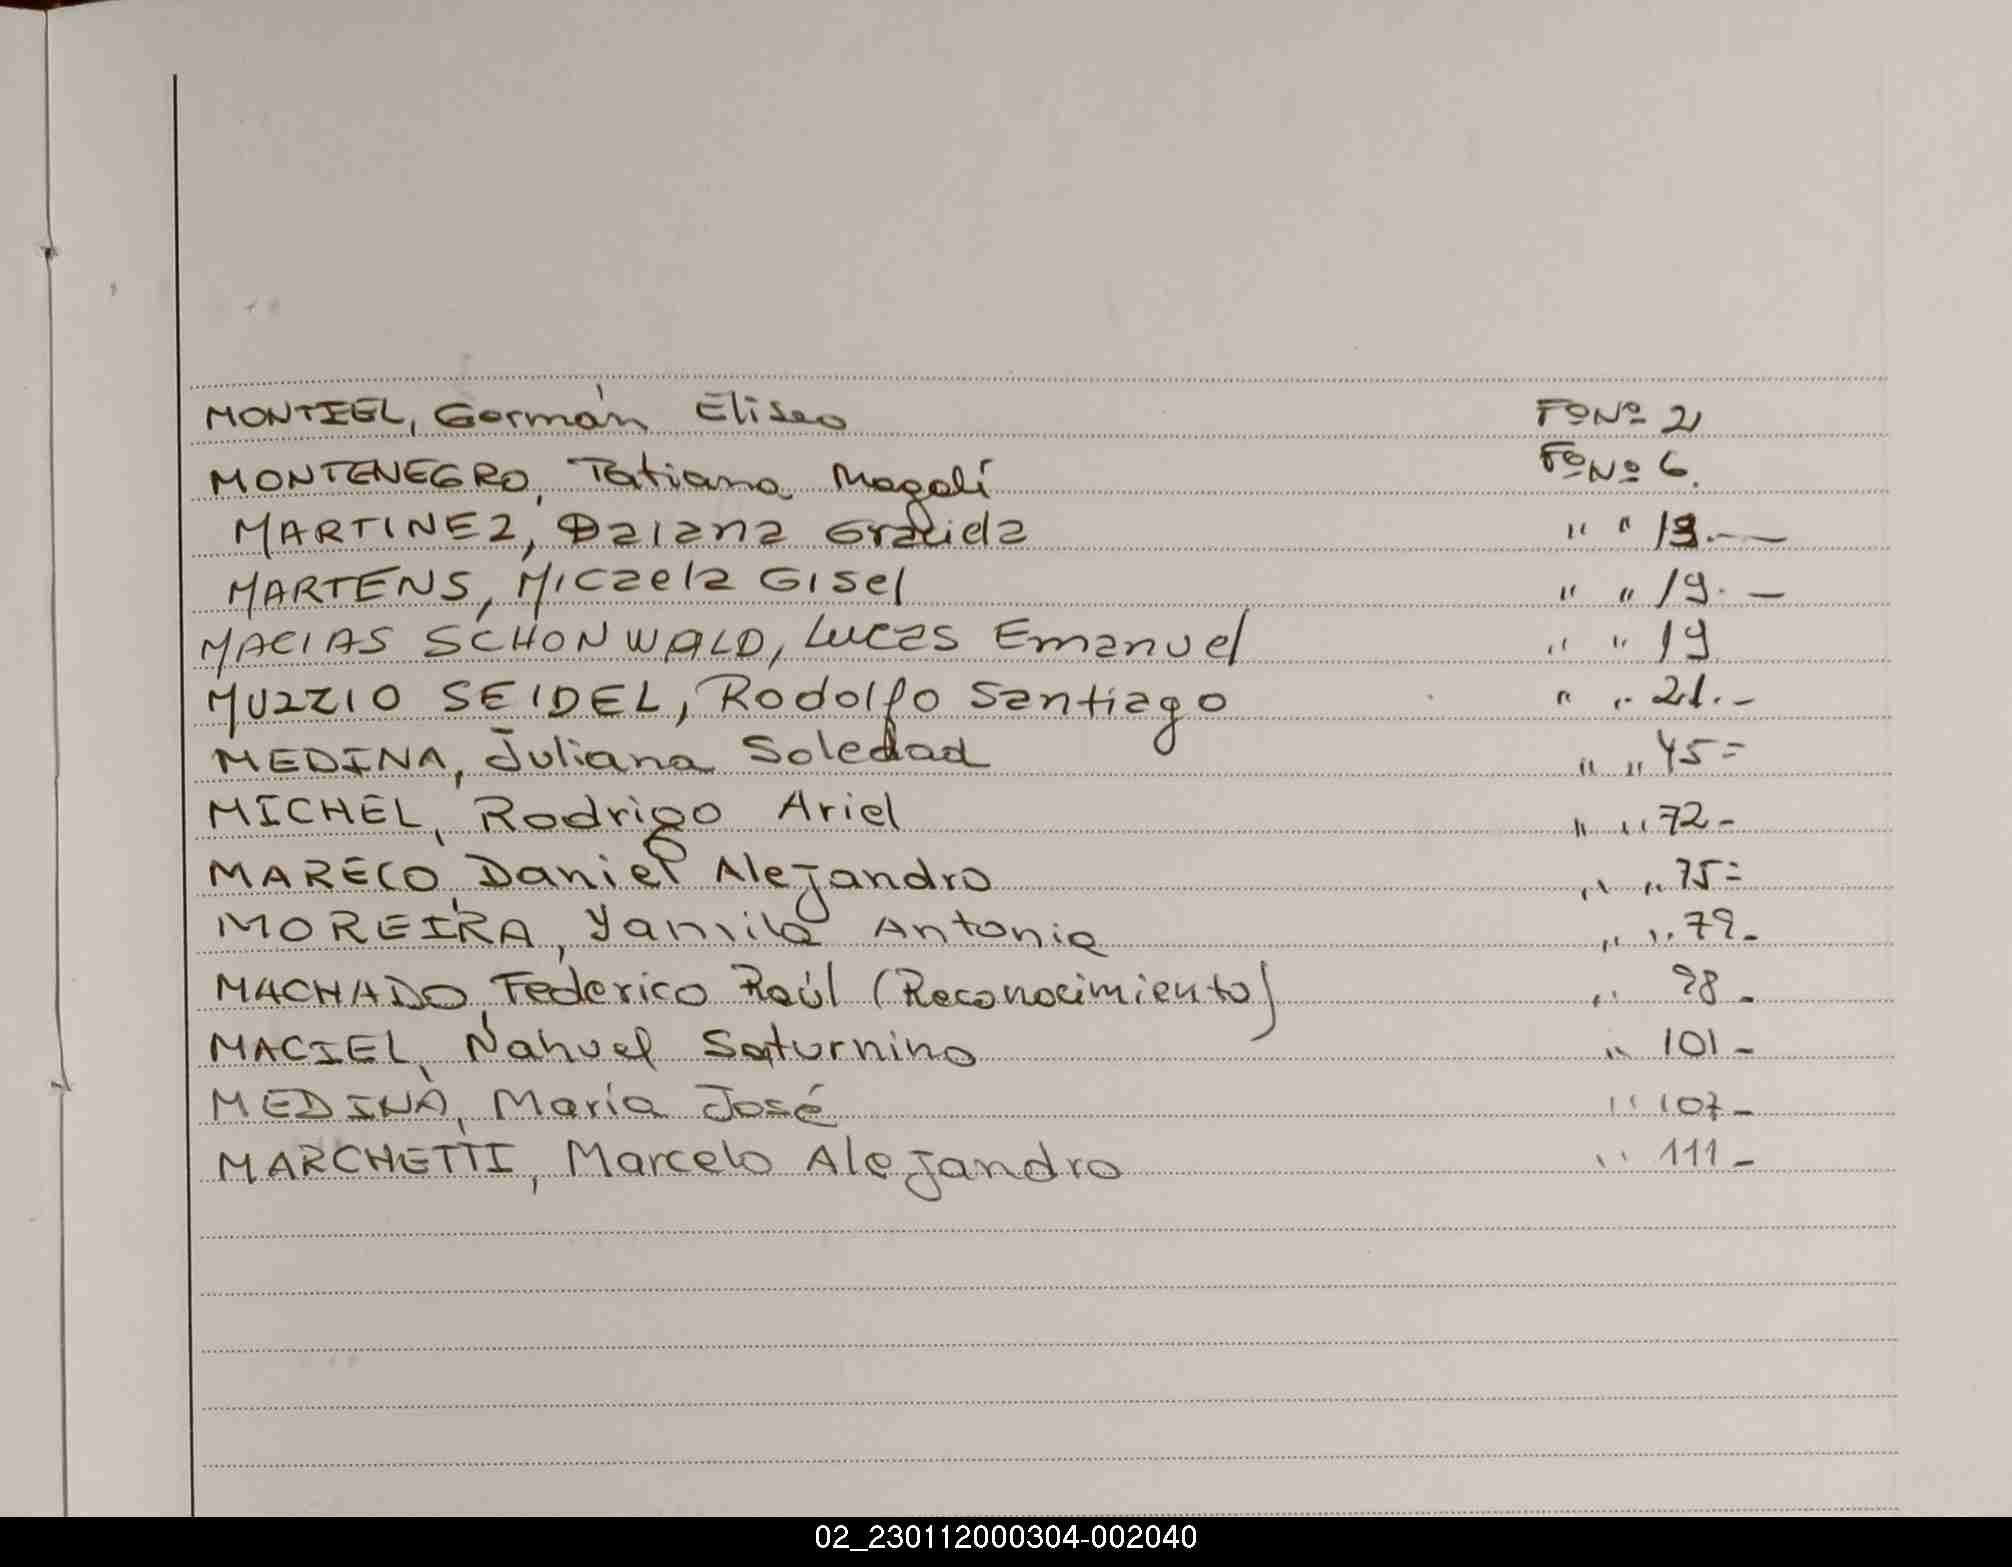 MONTIEL, Germán Eliseo Fº Nº 2,
MONTENEGRO, Tatiana Magalí Fº Nº 6.
MARTINEZ, Daiana Gracida " " 19.—
MARTENS, Micaela Gisel " " 19. —
MACIAS SCHONWALD, Lucas Emanuel " " 19
MUZZIO SEIDEL, Rodolfo Santiago " " 21.-
MEDINA, Juliana Soledad " " 45=
MICHEL, Rodrigo Ariel " " 72-
MARECO, Daniel Alejandro " " 75=
MOREIRA, Yamila Antonia " " 79-
MACHADO, Federico Raúl (Reconocimiento) " 98-
MACIEL, Nahuel Saturnino " 101-
MEDINA, María José " 107-
MARCHETTI, Marcelo Alejandro " 111-
02_230112000304-002040